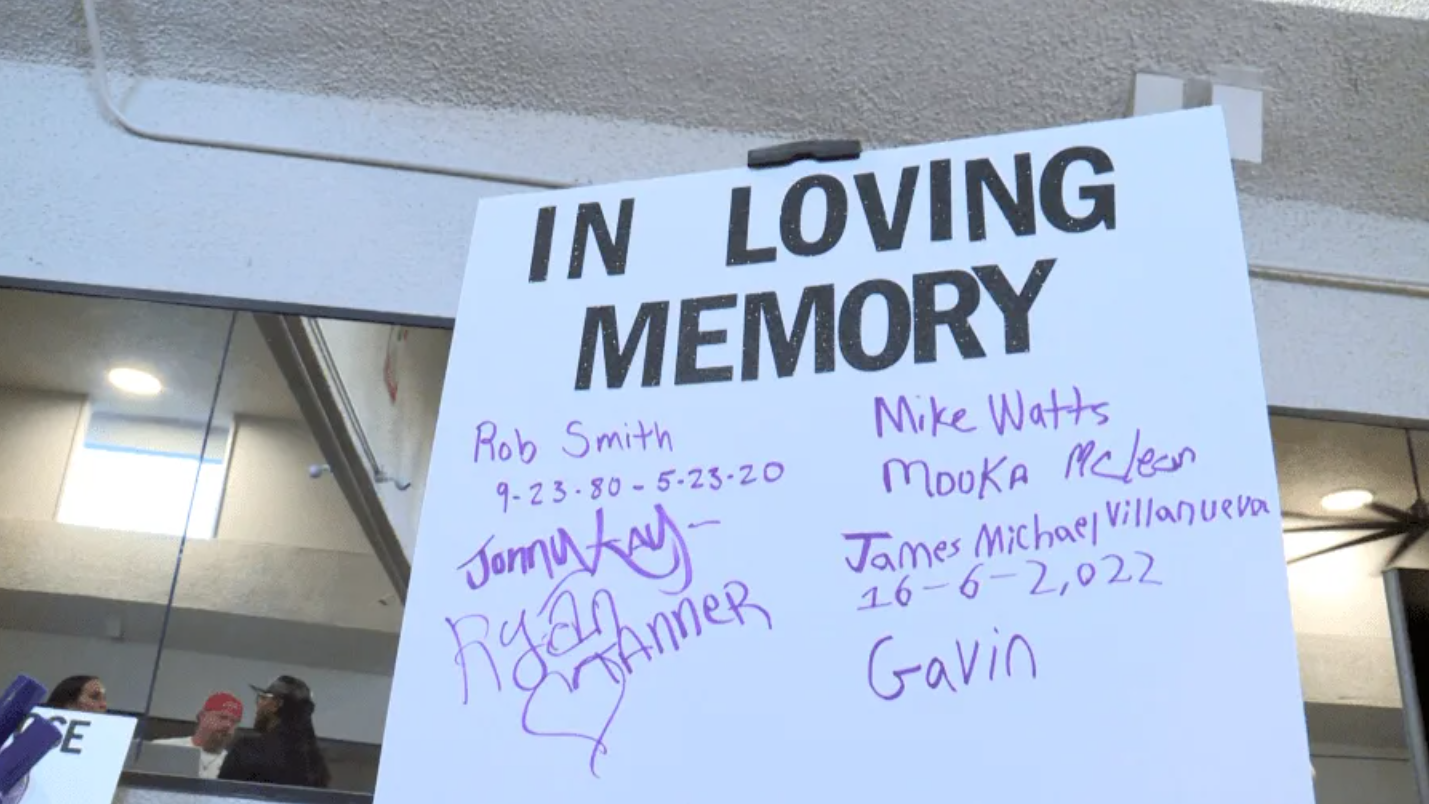 IN LOVING
MEMORY
Rob Smith
9-23-80 - 5-23-20
Jonny Kay
Ryan
TANNER
Mike Watts
MOUKA McLean
James Michael Villanueva
16-6-2,022
Gavin
SE